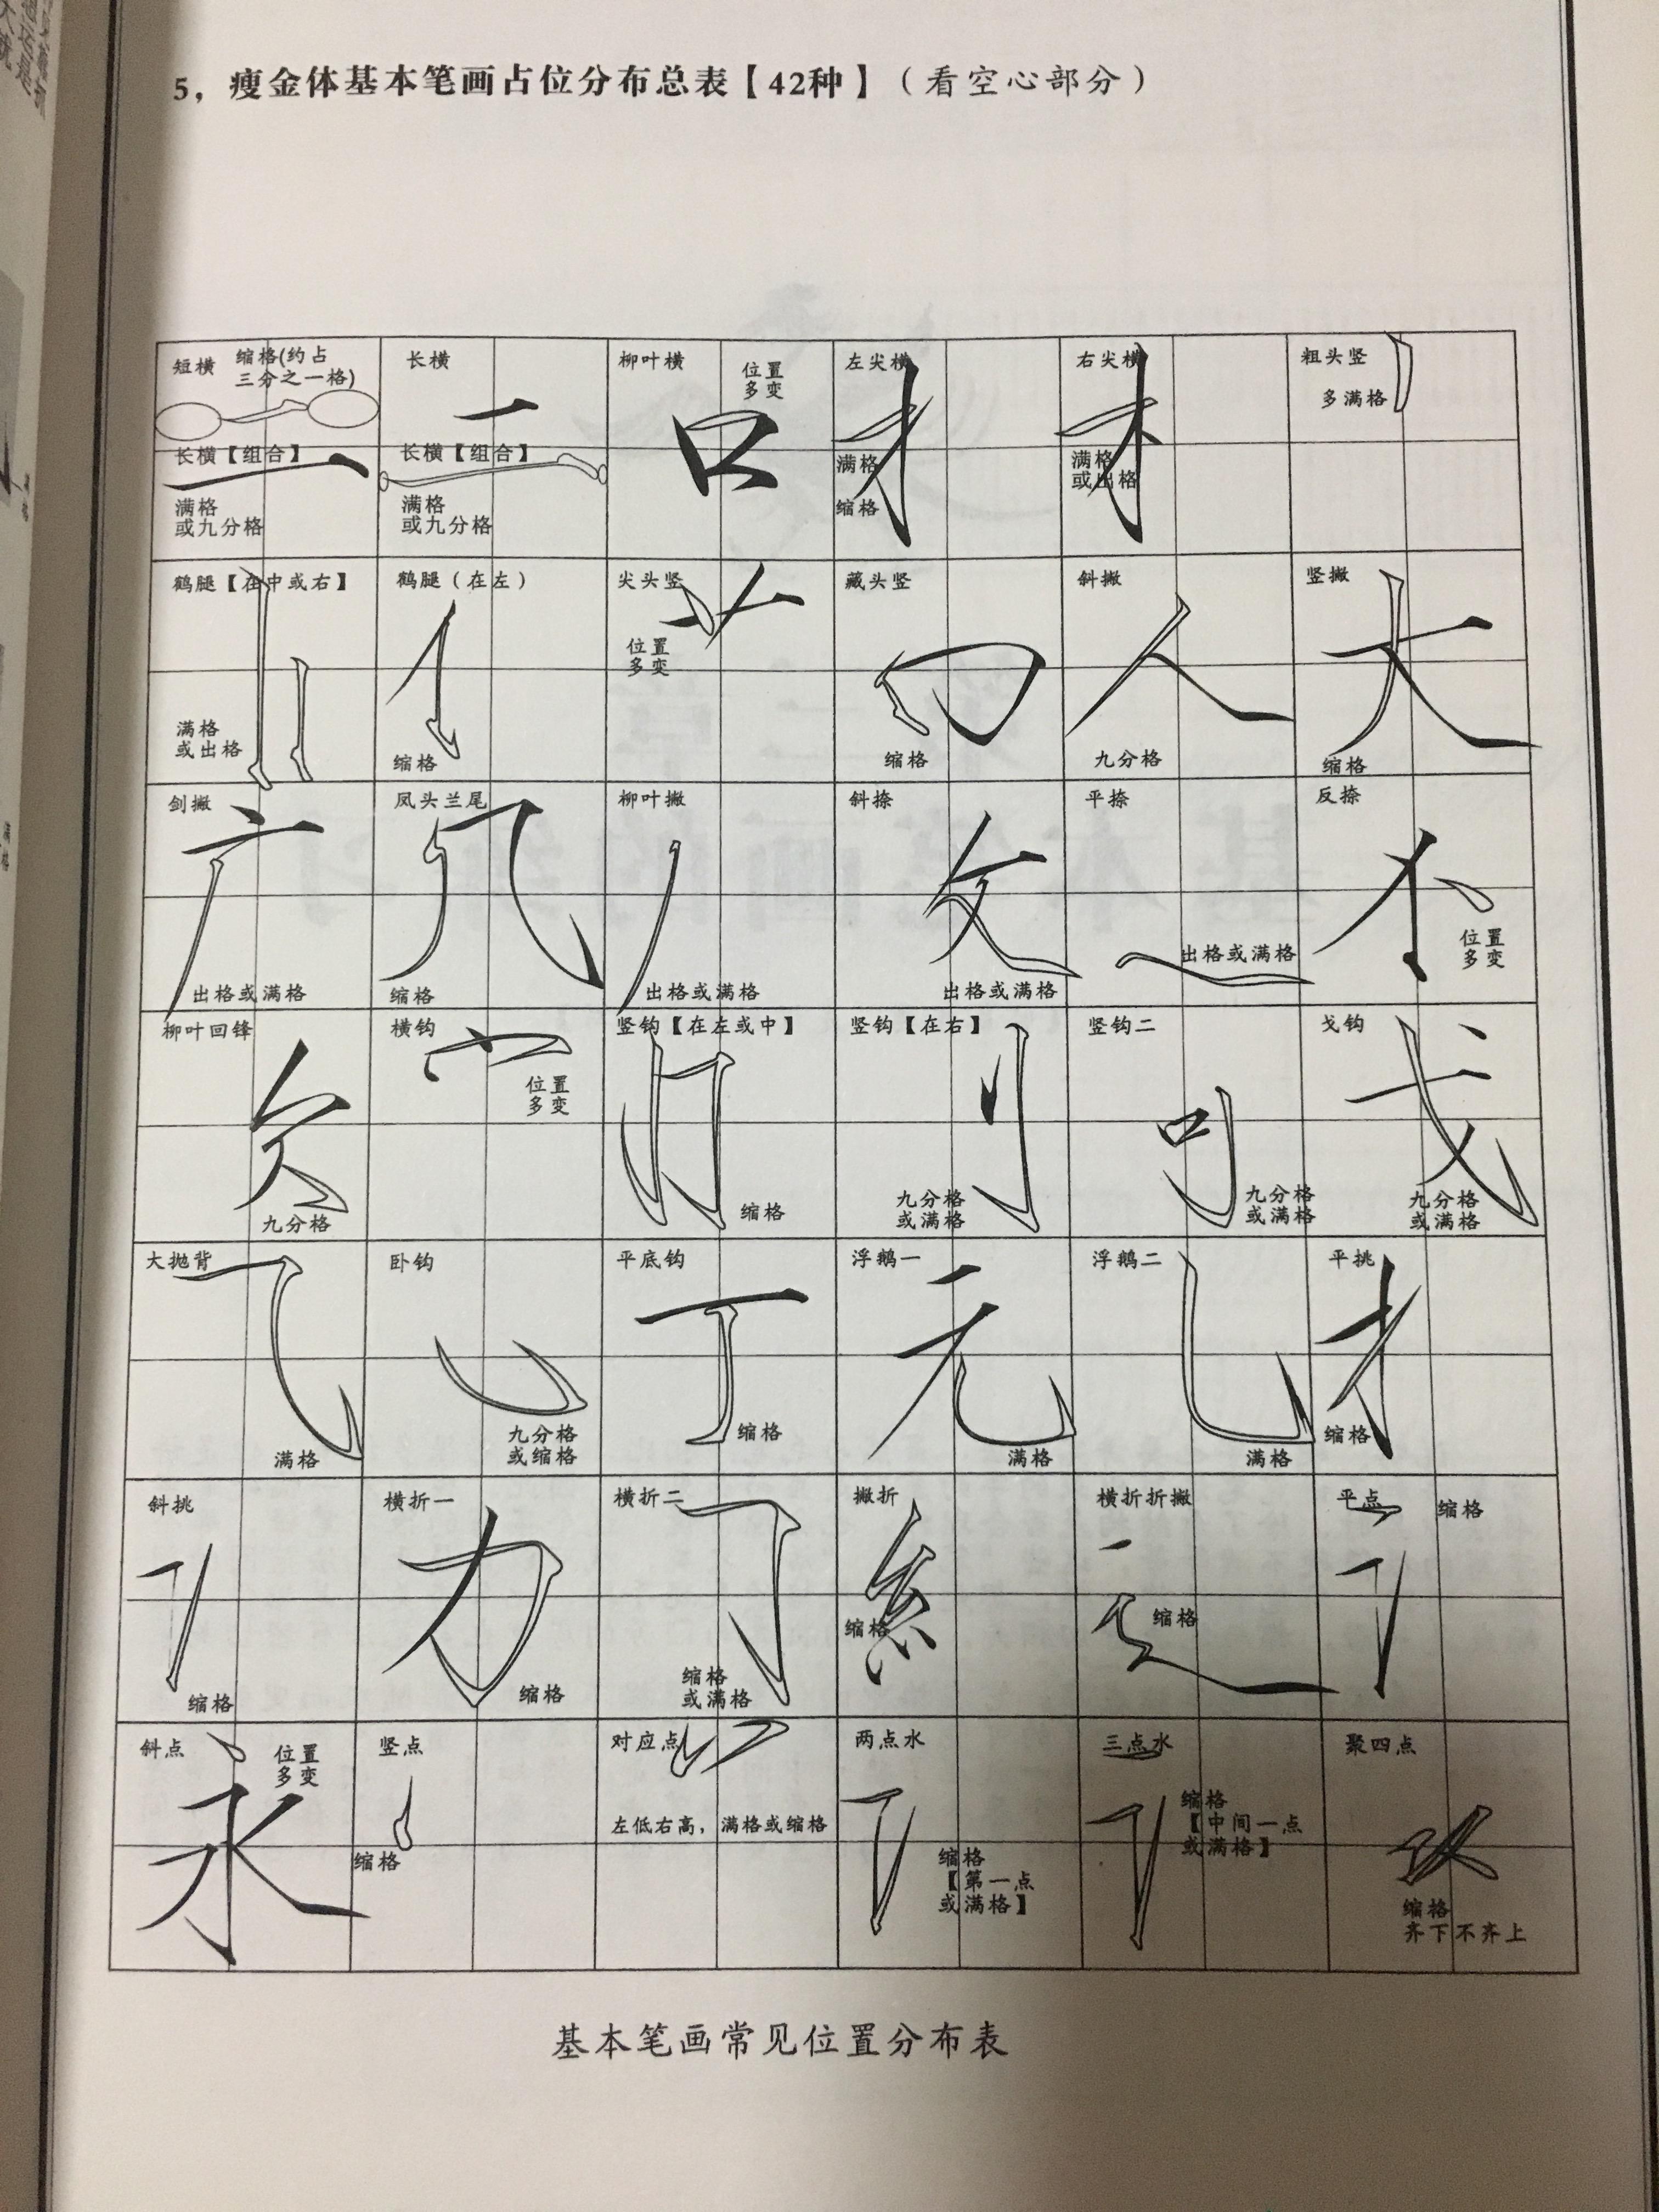 5，瘦金体基本笔画占位分布总表【42种】（看空心部分）
短横 缩格(约占
三分之一格)
长横【组合】
满格
或九分格
长横
长横【组合】
满格
或九分格
柳叶横
位置
多变
左尖横
满格
缩格
右尖横
满格
或出格
粗头竖
多满格
鹤腿【在中或右】
满格
或出格
鹤腿（在左）
缩格
尖头竖
位置
多变
藏头竖
缩格
斜撇
九分格
竖撇
缩格
剑撇
出格或满格
凤头兰尾
缩格
柳叶撇
出格或满格
斜捺
出格或满格
平捺
出格或满格
反捺
位置
多变
柳叶回锋
九分格
横钩
位置
多变
竖钩【在左或中】
缩格
竖钩【在右】
九分格
或满格
竖钩二
九分格
或满格
戈钩
九分格
或满格
大抛背
满格
卧钩
九分格
或缩格
平底钩
缩格
浮鹅一
满格
浮鹅二
满格
平挑
缩格
斜挑
缩格
横折一
缩格
横折二
缩格
或满格
撇折
缩格
横折折撇
缩格
平点 缩格
斜点
位置
多变
竖点
缩格
对应点
左低右高，满格或缩格
两点水
缩格
【第一点
或满格】
三点水
缩格
【中间一点
或满格】
聚四点
缩格
齐下不齐上
基本笔画常见位置分布表